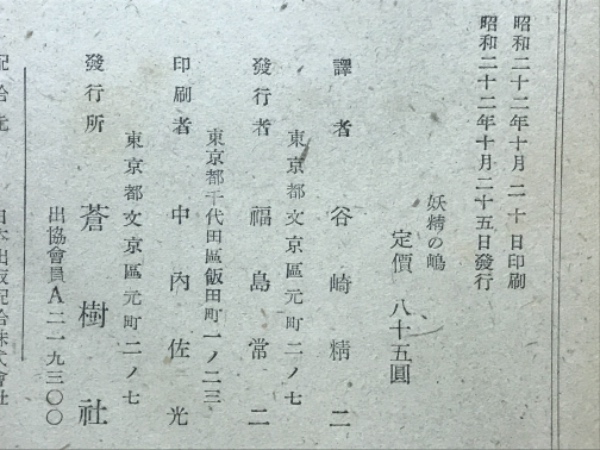 昭和二十二年十月二十日印刷
昭和二十二年十月二十五日發行
妖精の嶋
定價 八十五圓
譯者 谷崎精二
東京都文京區元町二ノ七
發行者 福島常二
東京都千代田區飯田町一ノ二三
印刷者 中內佐光
東京都文京區元町二ノ七
發行所 蒼樹社
出協會員A二一九三〇〇
配給元 日本出版配給株式會社